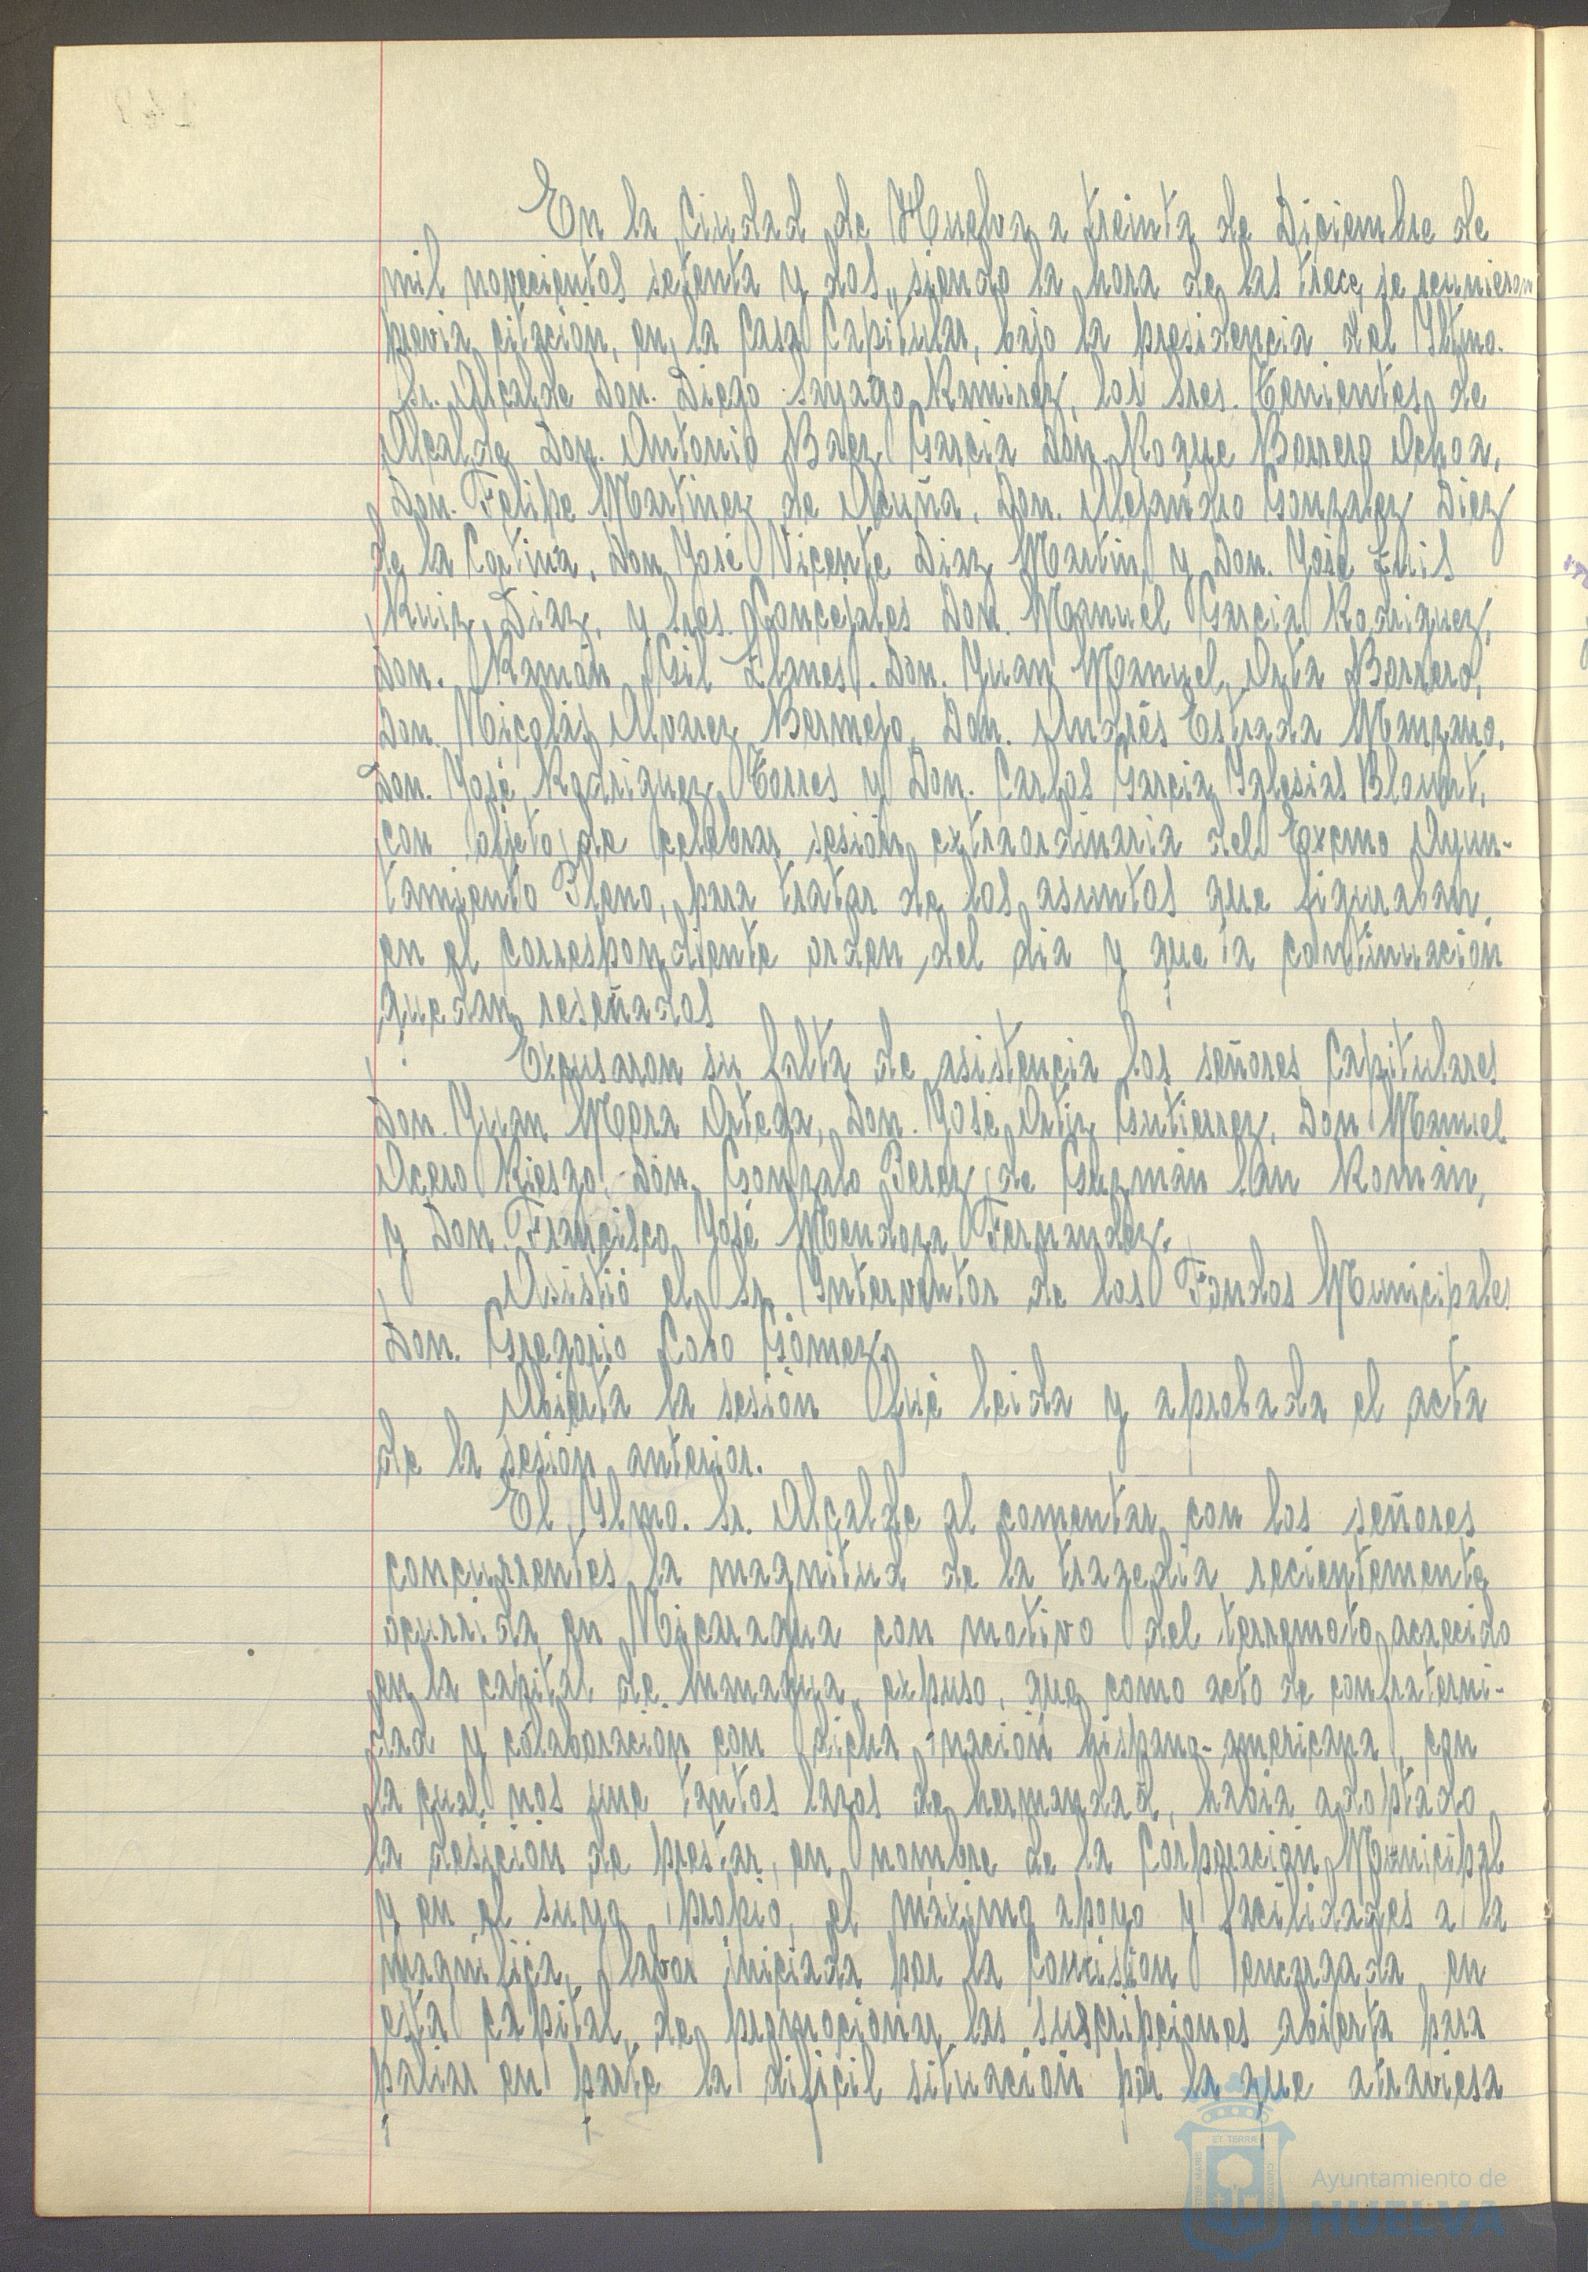 En la Ciudad de Huelva a treinta de Diciembre de
mil novecientos setenta y dos, siendo la hora de las trece, se reunieron
previa citación, en la Casa Capitular, bajo la presidencia del Iltmo.
Sr. Alcalde Don. Diego Sayago Ramirez, los Sres. Tenientes de
Alcalde Don. Antonio Baez Garcia Don. Roque Borrero Ochoa,
Don. Felipe Martinez de Acuña, Don. Alejandro Gonzalez Diez
de la Cortina, Don José Vicente Diaz Martin y Don. José Luis
Ruiz Diaz, y Sres. Concejales Don. Manuel Garcia Rodriguez,
Don. Ramón Gil Llanes. Don. Juan Manuel Orta Borrero,
Don. Nicolás Alvarez Bermejo, Don. Andrés Estrada Manzano,
Don. José Rodriguez Torres y Don. Carlos Garcia Iglesias Blount,
con objeto de celebrar sesión extraordinaria del Excmo Ayun-
tamiento Pleno, para tratar de los asuntos que figuraban
en el correspondiente orden del dia y que a continuación
quedan reseñados
Excusaron su falta de asistencia los señores Capitulares
Don. Juan Mora Ortega, Don. José Ortiz Gutierrez, Don Manuel
Acero Riesgo, Don. Gonzalo Perez de Guzmán San Román,
y Don. Francisco José Mendoza Fernandez.
Asistió el Sr. Interventor de los Fondos Municipales
Don. Gregorio Cobo Gómez.
Abierta la sesión fué leida y aprobada el acta
de la sesión anterior.
El Ilmo. Sr. Alcalde al comentar con los señores
concurrentes la magnitud de la tragedia recientemente
ocurrida en Nicaragua con motivo del terremoto acaecido
en la capital de Managua, expuso, que como acto de confraterni-
dad y colaboración con dicha nación hispano-americana, con
la cual nos une tantos lazos de hermandad, habia adoptado
la desición de prestar, en nombre de la Corporación Municipal
y en el suyo propio, el máximo apoyo y facilidades a la
magnifica labor iniciada por la Comision encargada en
esta capital, de promocionar las suscripciones abierta para
paliar en parte la dificil situación por la que atraviesa
Ayuntamiento de
HUELVA